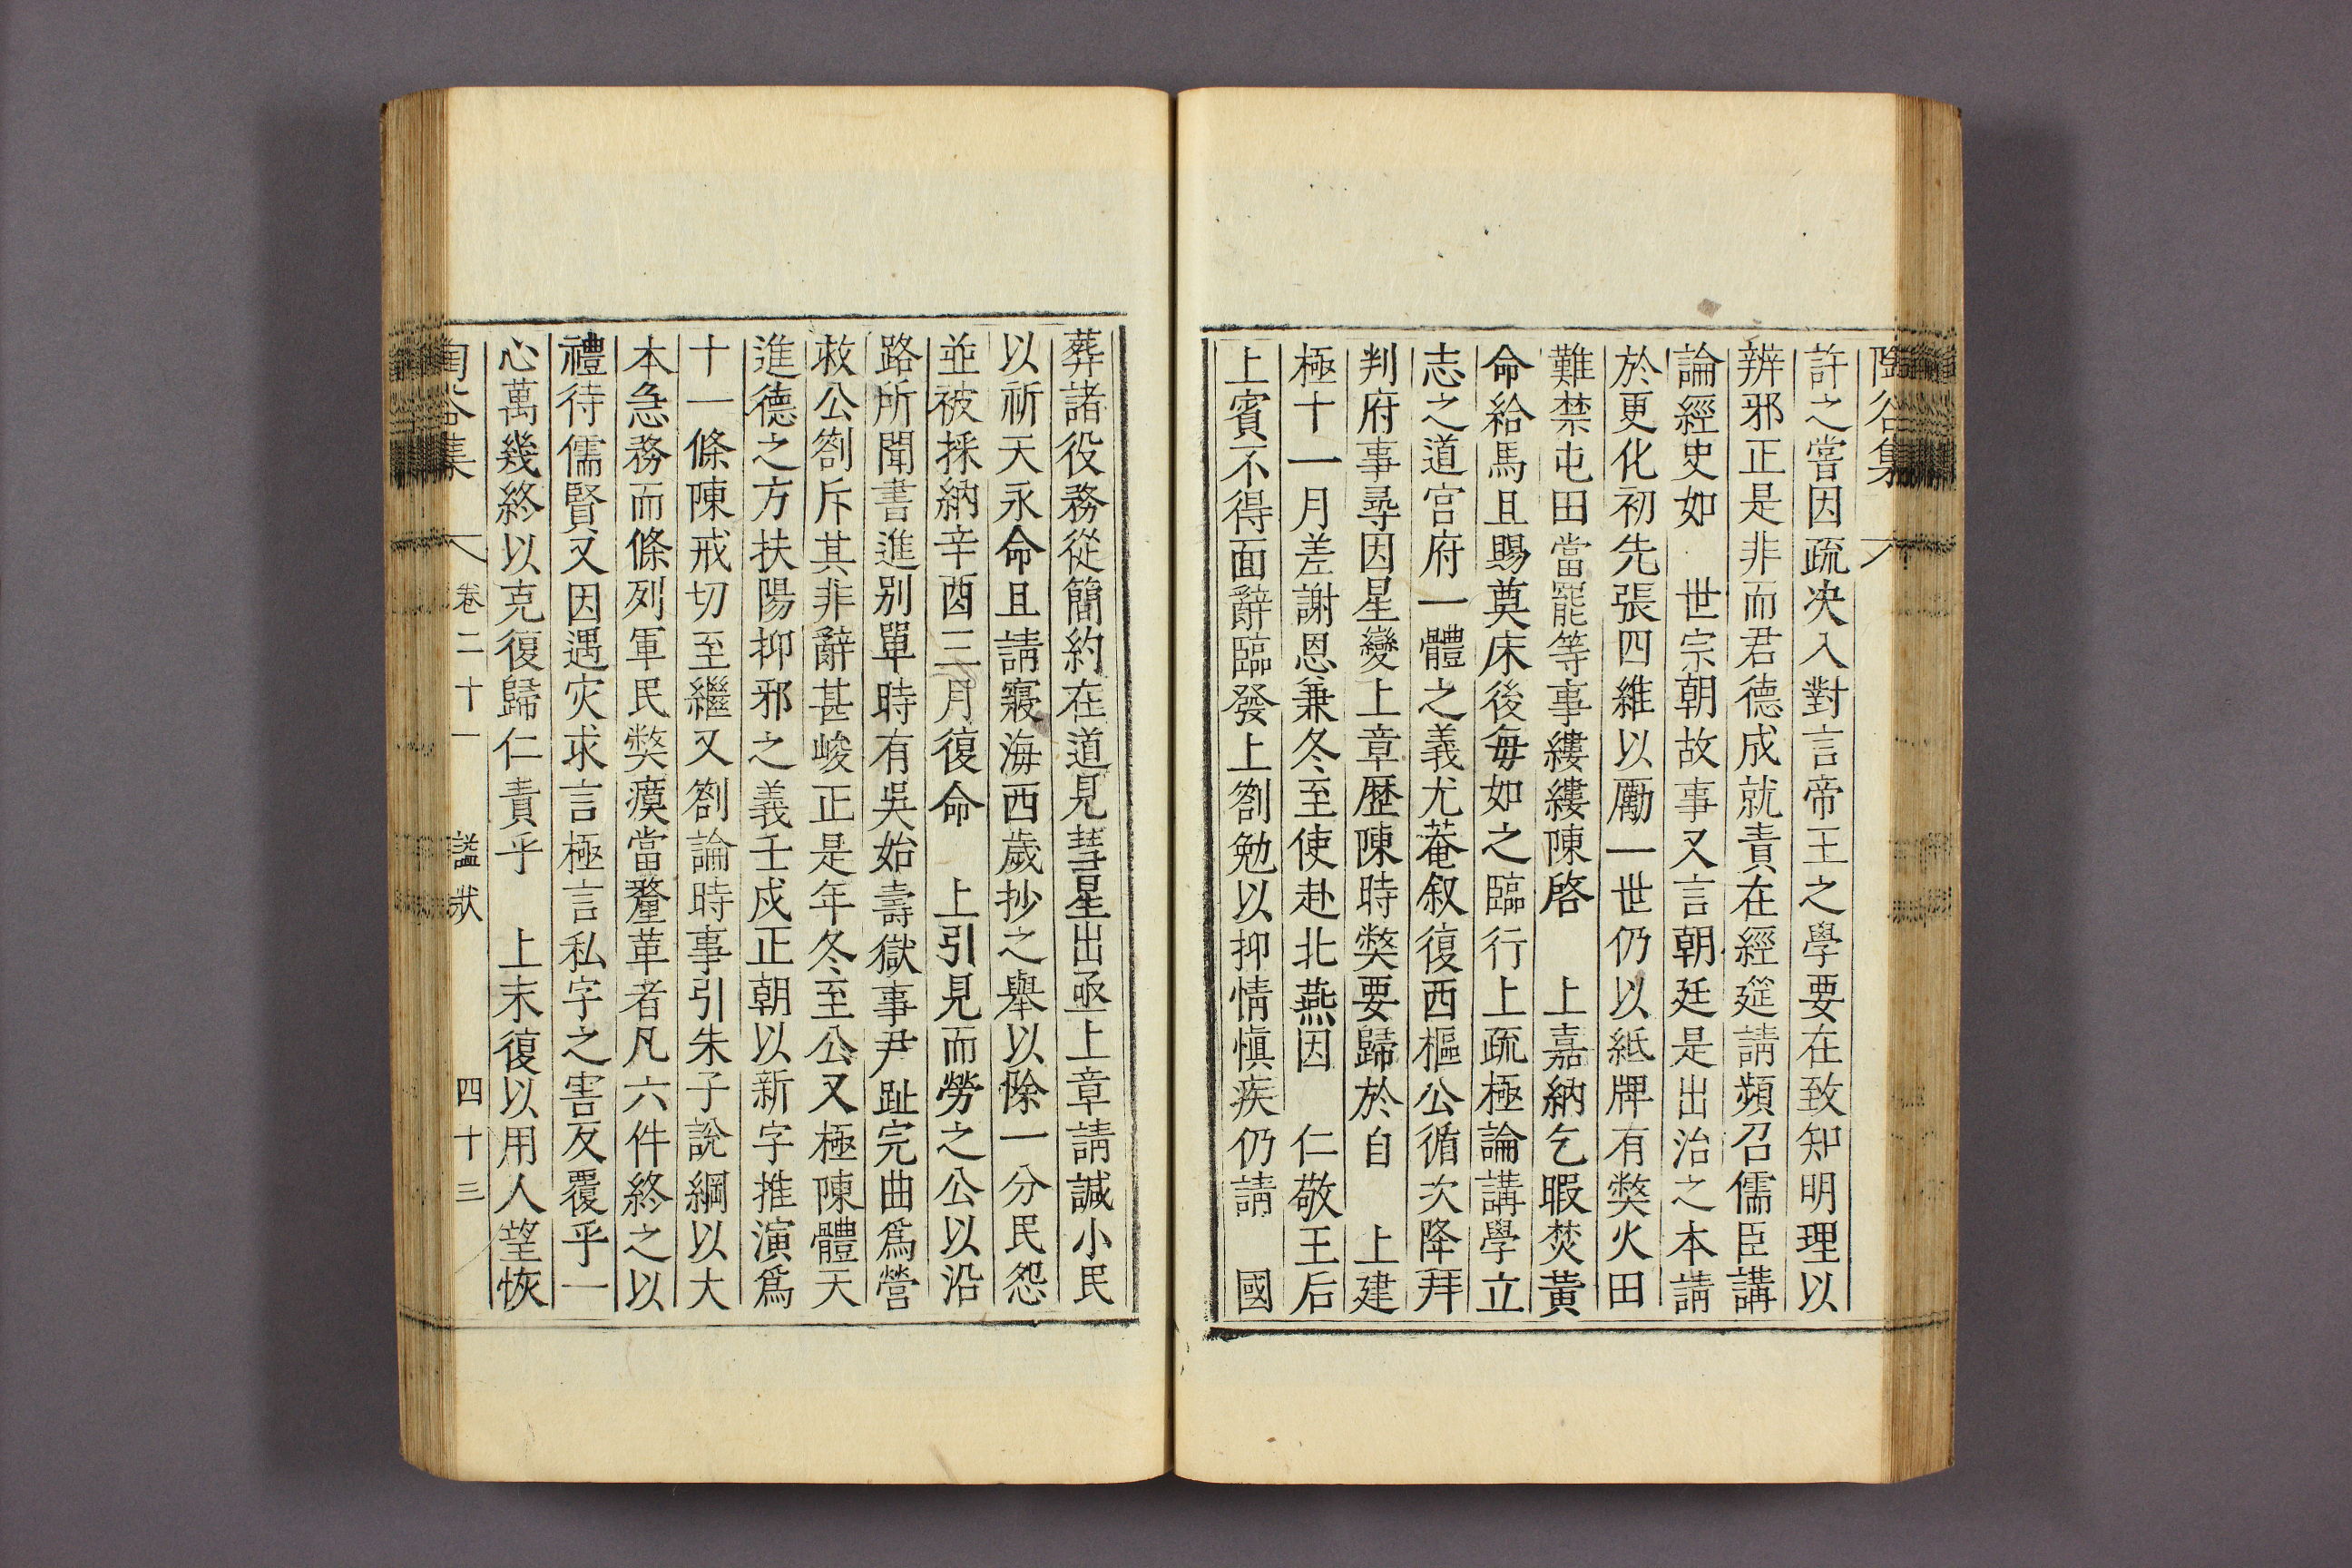 陶谷集
許之嘗因疏决入對言帝王之學要在致知明理以
辨邪正是非而君德成就責在經筵請頻召儒臣講
論經史如　世宗朝故事又言朝廷是出治之本請
於更化初先張四維以勵一世仍以紙牌有獘火田
難禁屯田當罷等事縷縷陳啓　上嘉納乞暇焚黃
命給馬且賜奠床後每如之臨行上疏極論講學立
志之道宮府一體之義尤菴叙復西樞公循次降拜
判府事尋因星變上章歷陳時獘要歸於自　上建
極十一月差謝恩兼冬至使赴北燕因　仁敬王后
上賓不得面辭臨發上劄勉以抑情愼疾仍請　國
葬諸役務從簡約在道見彗星出亟上章請諴小民
以祈天永命且請寢海西歲抄之擧以除一分民怨
並被採納辛酉三月復命　上引見而勞之公以沿
路所聞書進別單時有吳始壽獄事尹趾完曲爲營
救公劄斥其非辭甚峻正是年冬至公又極陳體天
進德之方扶陽抑邪之義壬戌正朝以新字推演爲
十一條陳戒切至繼又劄論時事引朱子說綱以大
本急務而條列軍民獘瘼當釐革者凡六件終之以
禮待儒賢又因遇灾求言極言私字之害反覆乎一
心萬幾終以克復歸仁責乎　上末復以用人望恢
陶谷集　卷二十一　諡狀　四十三